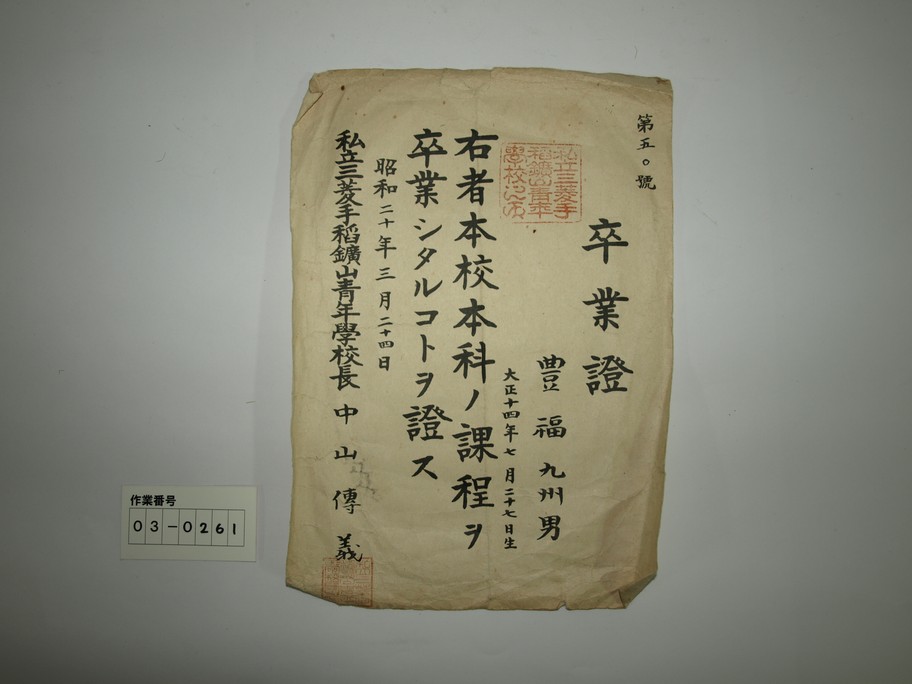 第五〇號
卒業證
豊福九州男
大正十四年七月二十七日生
私立三菱手
稻鑛山青年
學校之印
右者本校本科ノ課程ヲ
卒業シタルコトヲ證ス
昭和二十年三月二十四日
私立三菱手稻鑛山青年學校長中山傳義
作業番号
03-0261